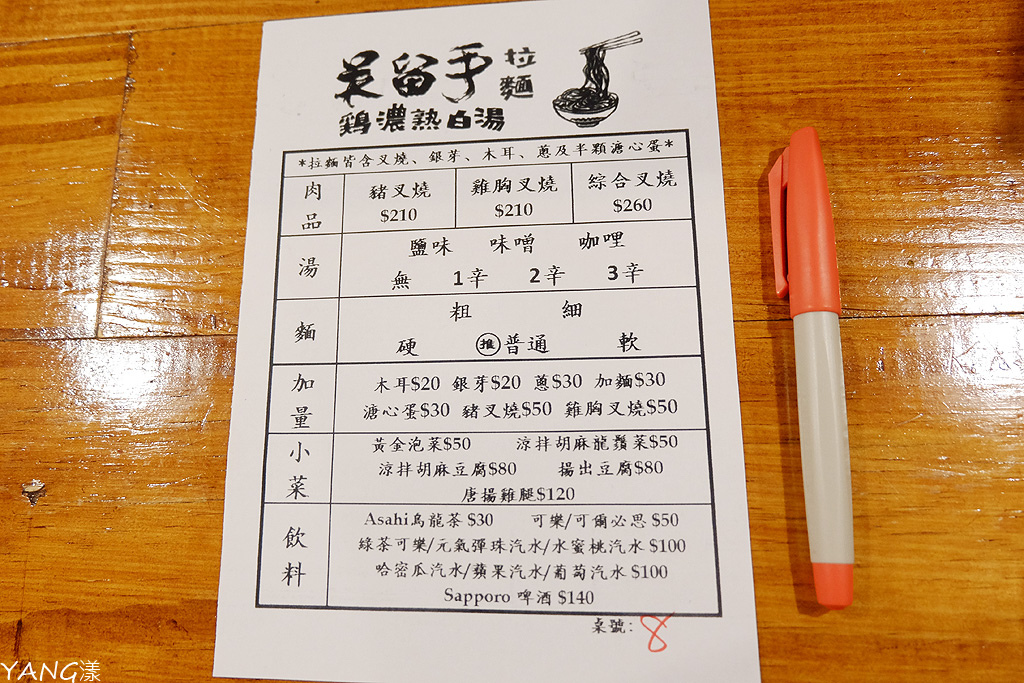 吳留手 拉麵
鶏濃熟白湯
*拉麵皆含叉燒、銀芽、木耳、蔥及半顆溏心蛋*
肉品 豬叉燒 雞胸叉燒 綜合叉燒
$210 $210 $260
湯 鹽味 味噌 咖哩
無 1辛 2辛 3辛
麵 粗 細
硬 推 普通 軟
加量 木耳$20 銀芽$20 蔥$30 加麵$30
溏心蛋$30 豬叉燒$50 雞胸叉燒$50
小菜 黃金泡菜$50 涼拌胡麻龍鬚菜$50
涼拌胡麻豆腐$80 揚出豆腐$80
唐揚雞腿$120
飲料 Asahi烏龍茶 $30 可樂/可爾必思 $50
綠茶可樂/元氣彈珠汽水/水蜜桃汽水 $100
哈密瓜汽水/蘋果汽水/葡萄汽水 $100
Sapporo 啤酒 $140
桌號: 8
YANG漾